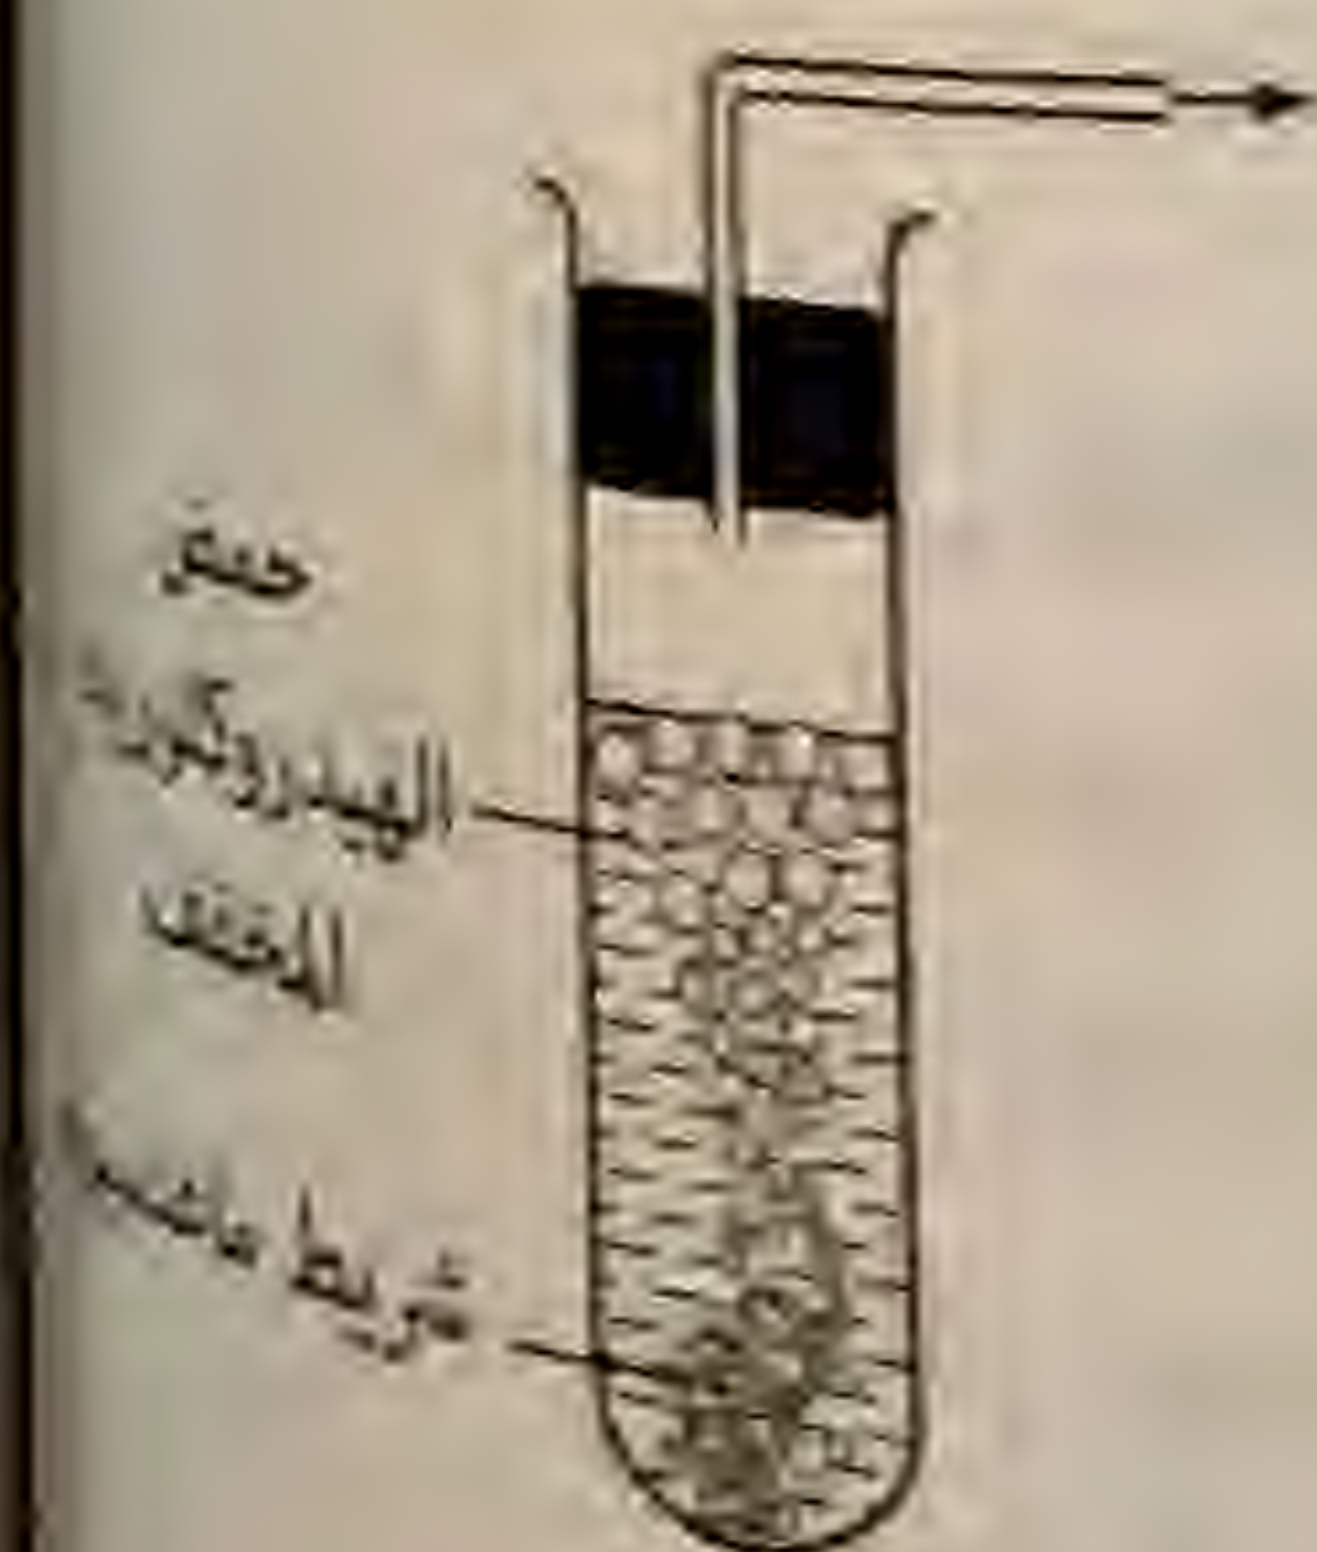 حمض
الهيدروكلوريك
المخفف
شريط ماغنسيوم